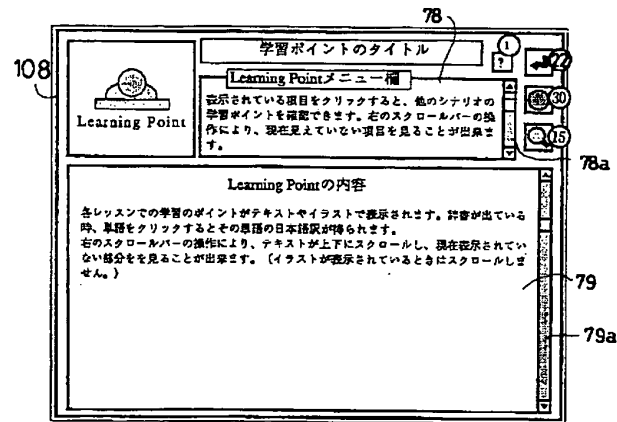 78
学習ポイントのタイトル
1
?
22
108
Learning Pointメニュー欄
30
Learning Point
表示されている項目をクリックすると、他のシナリオの
学習ポイントを確認できます。右のスクロールバーの操
作により、現在見えていない項目を見ることが出来ま
す。
15
78a
Learning Pointの内容
各レッスンでの学習のポイントがテキストやイラストで表示されます。辞書が出ている
時、単語をクリックするとその単語の日本語訳が得られます。
右のスクロールバーの操作により、テキストが上下にスクロールし、現在表示されてい
ない部分をを見ることが出来ます。(イラストが表示されているときはスクロールしま
せん。)
79
79a